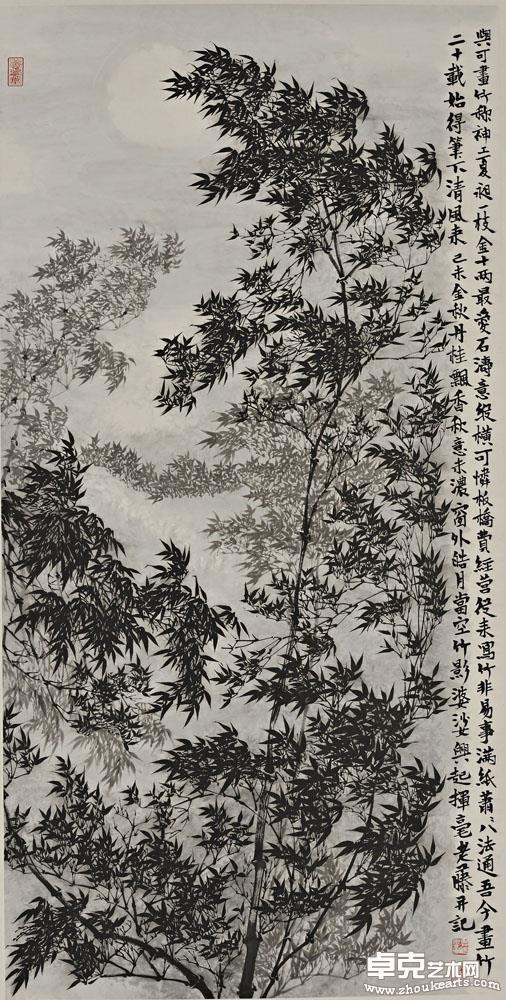 與可畫竹稱神工夏昶一枝金十两最愛石濤意縱橫可憐板橋費經营從来寫竹非易事滿紙蕭〻八法通吾今畫竹
二十载始得筆下清風来己未金秋丹桂飄香秋意未濃窗外皓月當空竹影婆娑興起揮毫老藤并記
卓克艺术网
www.zhoukearts.com